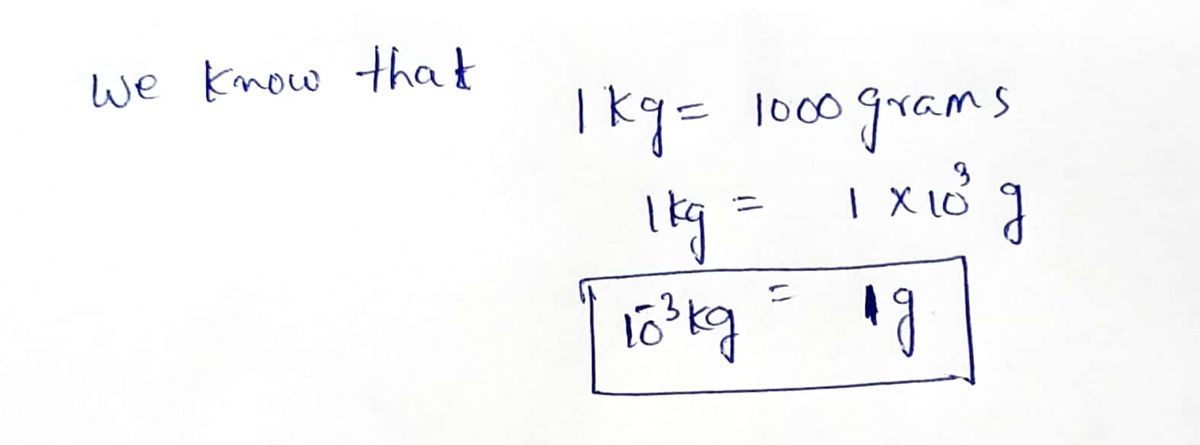 We know that
1 kg = 1000 grams
1 kg = 1 × 10³ g
10⁻³ kg = 1g